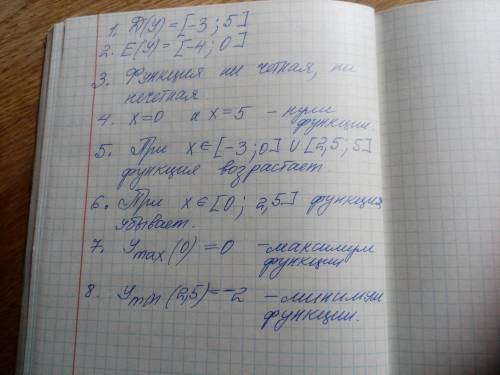 1. D(y) = [-3; 5]
2. E(y) = [-4; 0]
3. Функция ни четная, ни
нечетная
4. x=0 и x=5 - нули
функции.
5. При x∈[-3; 0] ∪ [2,5; 5]
функция возрастает
6. При x∈[0; 2,5] функция
убывает.
7. y max (0) = 0 - максимум
функции
8. y min (2,5) = -2 - минимум
функции.